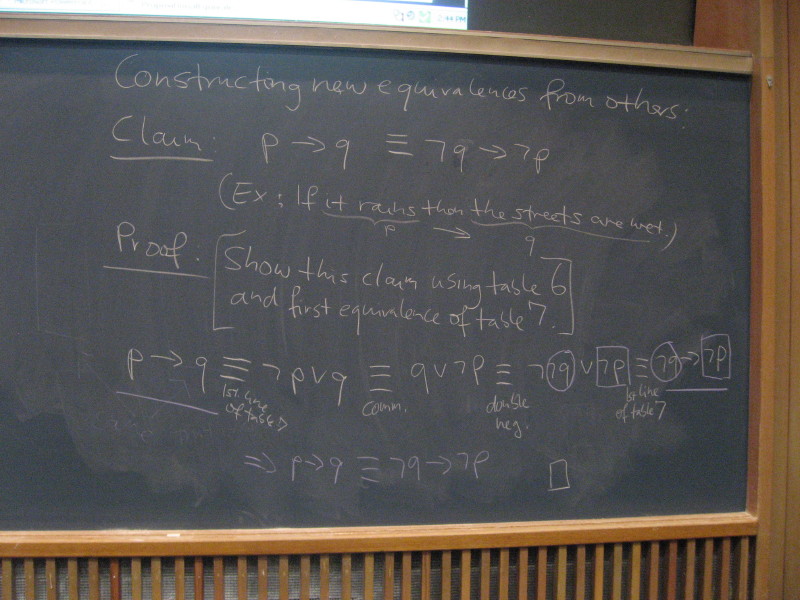 2:44 PM
Constructing new equivalences from others:
Claim: p → q ≡ ¬q → ¬p
(Ex: If it rains then the streets are wet.)
p → q
Proof: [Show this claim using table 6
and first equivalence of table 7.]
p → q ≡ ¬p ∨ q ≡ q ∨ ¬p ≡ ¬¬q ∨ ¬p ≡ ¬q → ¬p
1st line of table 7 comm. double neg. 1st line of table 7
⇒ p → q ≡ ¬q → ¬p □